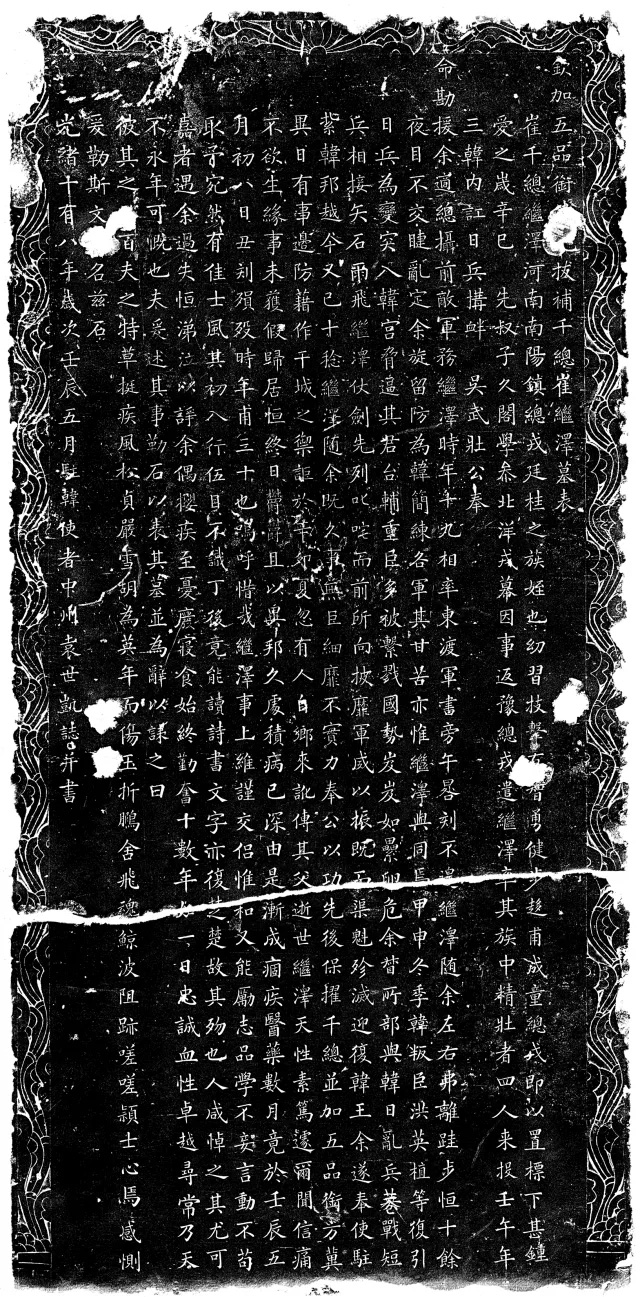 欽加五品銜拔補千總崔繼澤墓表
崔千總繼澤河南南陽鎮總戎廷桂之族姪也幼習技擊勇健步趍甫成童總戎即以置標下甚鍾
愛之歲辛巳 先叔子久閣學叅北洋戎幕因事返豫總戎遣繼澤率其族中精壯者四人来投壬午年
三韓内訌日兵搆衅 吳武壯公奉
命勘援余適總攝前敵軍務繼澤時年十九相率東渡軍書旁午晷刻不遑繼澤随余左右弗離跬步恒十餘
夜目不交睫亂定余旋留防為韓簡練各軍其甘苦亦惟繼澤與同焉甲申冬季韓叛臣洪英植等復引
日兵為變突入韓宮脅逼其君台輔重臣多被繫戮國勢岌岌如纍卵危余督所部與韓日亂兵巷戰短
兵相接矢石雨飛繼澤仗劍先列叱咤而前所向披靡軍威以振既而渠魁殄滅迎復韓王余遂奉使駐
紮韓邦越今又已十稔繼澤随余既久事無巨細靡不實力奉公以功先後保擢千總並加五品銜方冀
異日有事邊防藉作干城之禦詎於年夏忽有人自鄉来訛傳其父逝世繼澤天性素篤遽爾聞信痛
不欲生緣事未獲假歸居恒終日鬱鬱且以異邦久處積病已深由是漸成痼疾醫藥數月竟於壬辰五
月初八日丑刻殞歿時年甫三十也嗚呼惜哉繼澤事上維謹交侣惟和又能厲志品學不妄言動不苟
取予宛然有佳士風其初入行伍目不識丁後竟能讀詩書文字亦復楚楚故其殁也人咸悼之其尤可
嘉者遇余過失恒涕泣以諍余偶攖疾至憂廢寢食始終勤奮十數年如一日忠誠血性卓越尋常乃天
不永年可慨也夫爰述其事勒石以表其墓並為辭以誄之曰
彼其之百夫之特草挺疾風松貞嚴雪胡為英年而傷玉折鵬舍飛魂鯨波阻跡嗟嗟潁士心焉感惻
爰勒斯文名兹石
光緒十有八年歲次壬辰五月駐韓使者中州袁世凱誌并書